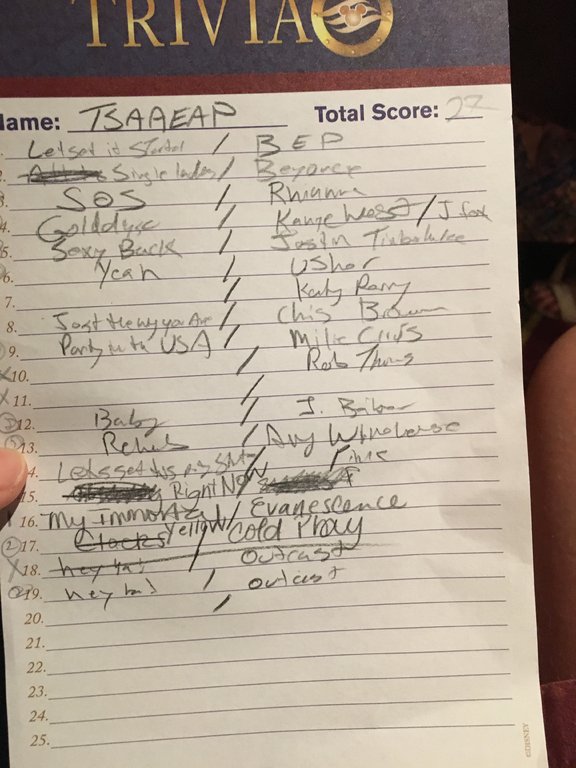 TRIVIA
Name: TSAAEAP Total Score: 27
Let's get it Started / BEP
2. Single Ladies / Beyonce
3. SOS / Rhianna
4. Golddyge / Kanye West / J fox
5. Sexy Back / Justin Timbolake
6. Yeah / Usher
7. / Katy Parry
8. Just the way you Are / Chis Brown
9. Party in the USA / Milie Cirus
X10. / Rob Thomas
X11. /
12. Baby / J. Beiber
13. Rehab / Amy Winehouse
14. Lets get this party
15. Right Now /
16. My Immortal / Evanescence
2 17. Clocks Yellow / Cold Play
X18. hey Ya! Outcast
19. hey ya! / outcast
20. /
21.
22.
23.
24.
25.
©DISNEY